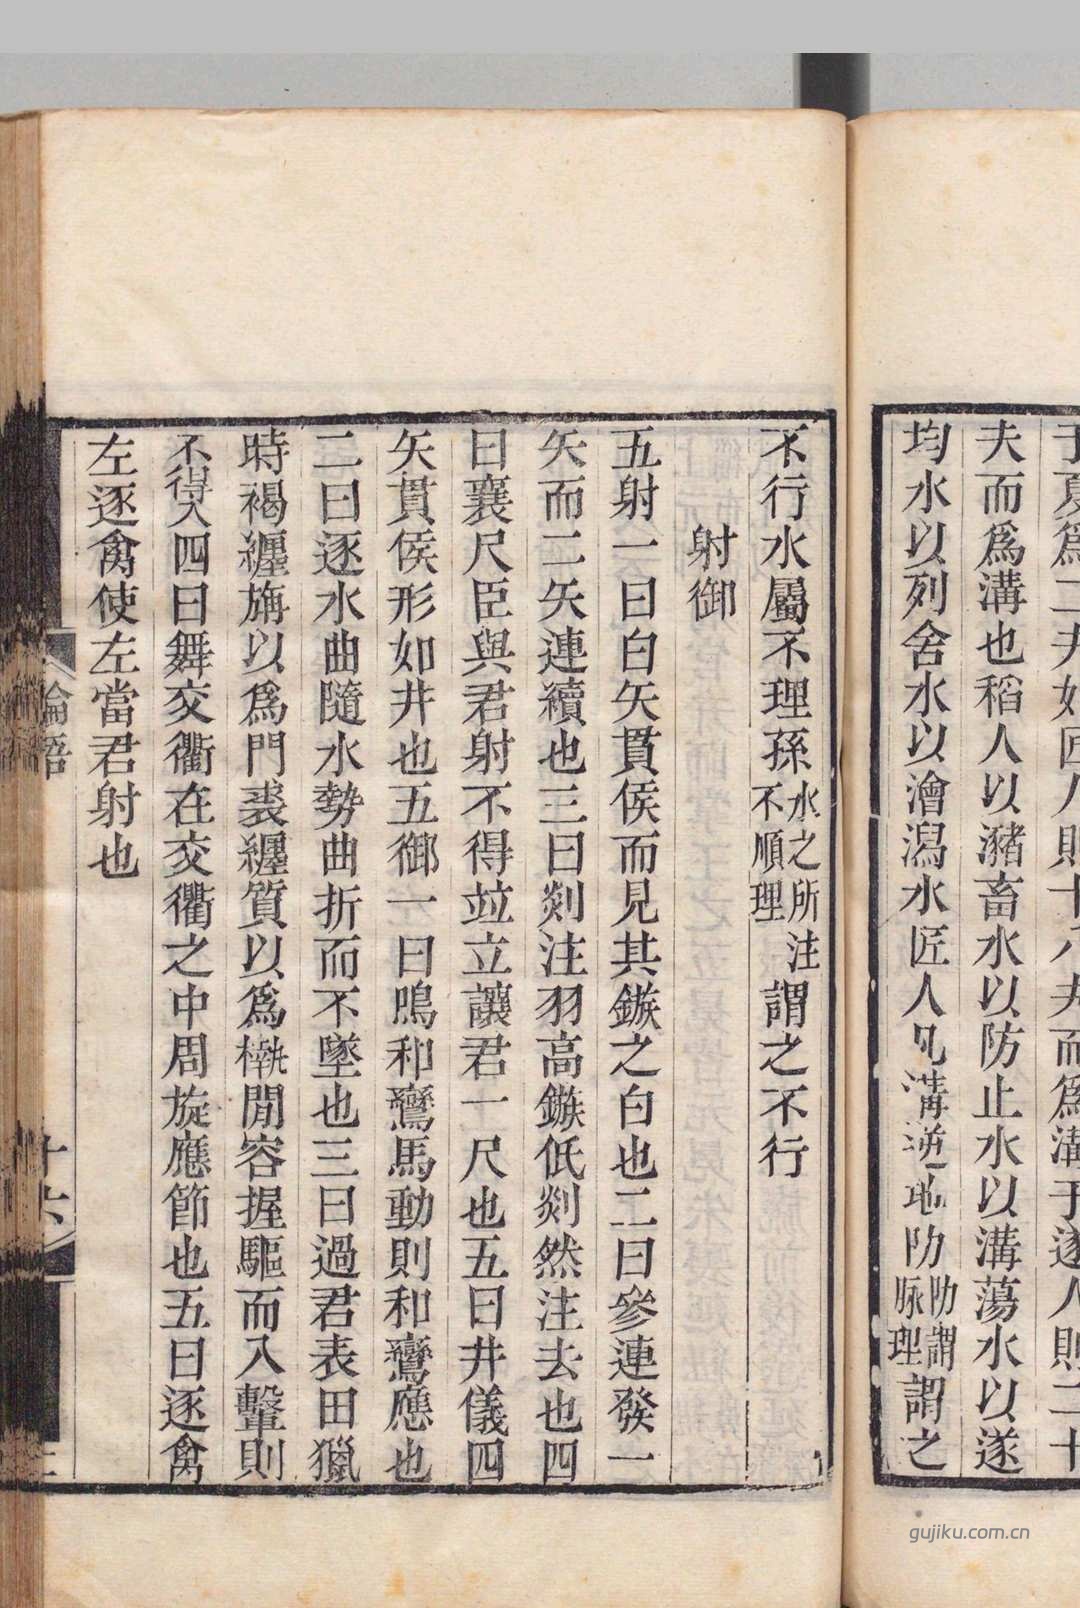 夫而爲溝也稻人以瀦畜水以防止水以溝蕩水以遂
均水以列舍水以澮瀉水匠人凡溝逆地阞阞謂脉理謂之
不行水屬不理孫水之所注不順理謂之不行
射御
五射一曰白矢貫侯而見其鏃之白也二曰參連發一
矢而二矢連續也三曰剡注羽高鏃低剡然注去也四
曰襄尺臣與君射不得竝立讓君一尺也五曰井儀四
矢貫侯形如井也五御一曰鳴和鸞馬動則和鸞應也
二曰逐水曲隨水勢曲折而不墜也三曰過君表田獵
時褐纏旃以爲門裘纏質以爲槸閒容握驅而入轚則
不得入四曰舞交衢在交衢之中周旋應節也五曰逐禽
左逐禽使左當君射也
論語
十六
gujiku.com.cn